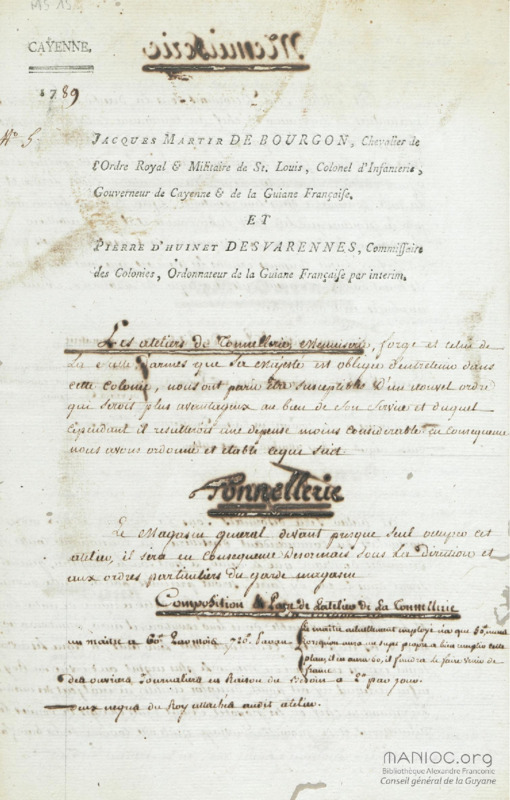 MS 15
CAYENNE.
Menuiserie
1789
N.º 5.
JACQUES MARTIR DE BOURGON, Chevalier de
l'Ordre Royal & Militaire de St. Louis, Colonel d'Infanterie,
Gouverneur de Cayenne & de la Guiane Françaiſe.
ET
PIERRE D'HUINET DESVARENNES, Commiſſaire
des Colonies, Ordonnateur de la Guiane Françaiſe par interim.
Les ateliers de Tonnellerie, Menuiserie, forge et celui de
La Salle d'armes que Sa Majesté est obligée d'entretenir dans
cette colonie, nous ont paru être susceptible d'un nouvel ordre
que seroit plus avantageux au bien de Son Service et duquel
cependant il resulteroit une depense moins considerable en consequence
nous avons ordonné et établi ce qui suit
Tonnellerie
Le Magasin general devant presque seul occuper cet
atelier, il sera en consequence desormais sous La direction et
aux ordres particuliers du garde magasin
Composition & Paye de L'atelier de La Tonnellerie
un maitre a 60# par mois 720# par an
Le maitre actuellement employé n'a que 50#
lorsqu'on aura un sujet propre a bien remplir cette
place, il en aura 60, il faudra le faire venir de
france
des ouvriers Journaliers en Raison du besoin a 2# par jour.
deux negres du Roy attachés audit atelier.
MANIOC.org
Bibliothèque Alexandre Franconie
Conseil général de la Guyane